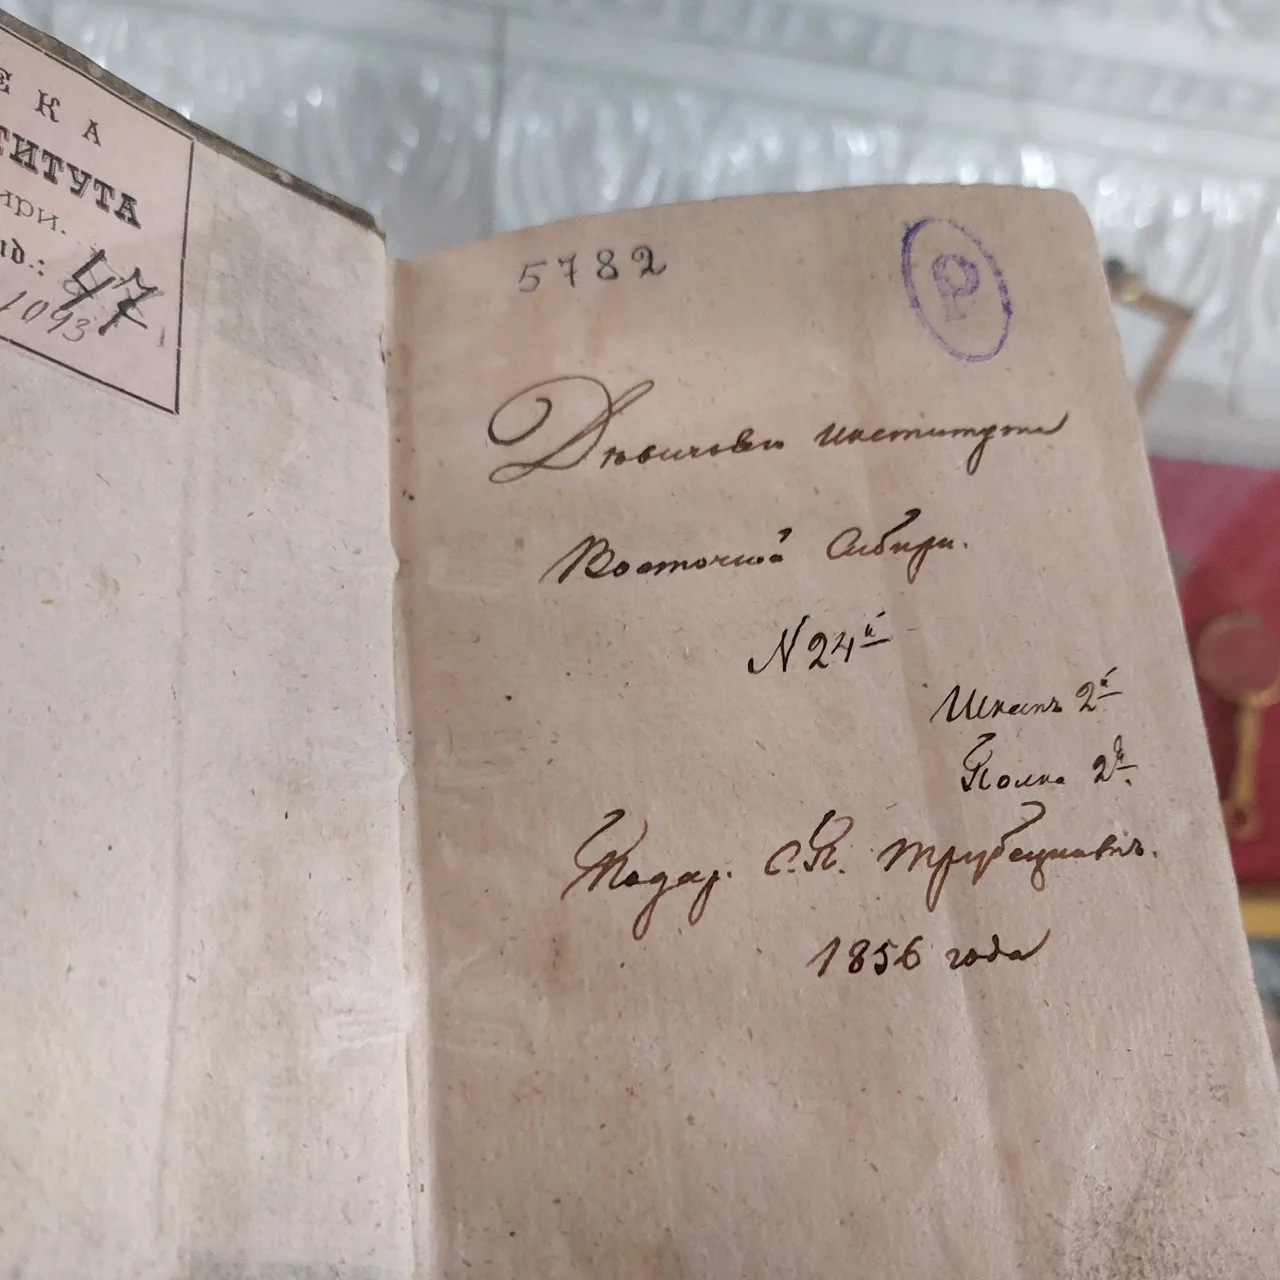 ЕКА
ТИТУТА
ири.
47
1093
5782
Р
Дѣвичьяго института
Восточной Сибири.
N 24й
Шкапъ 2й
Полка 2я.
Подар. С.П. Трубецкимъ.
1856 года